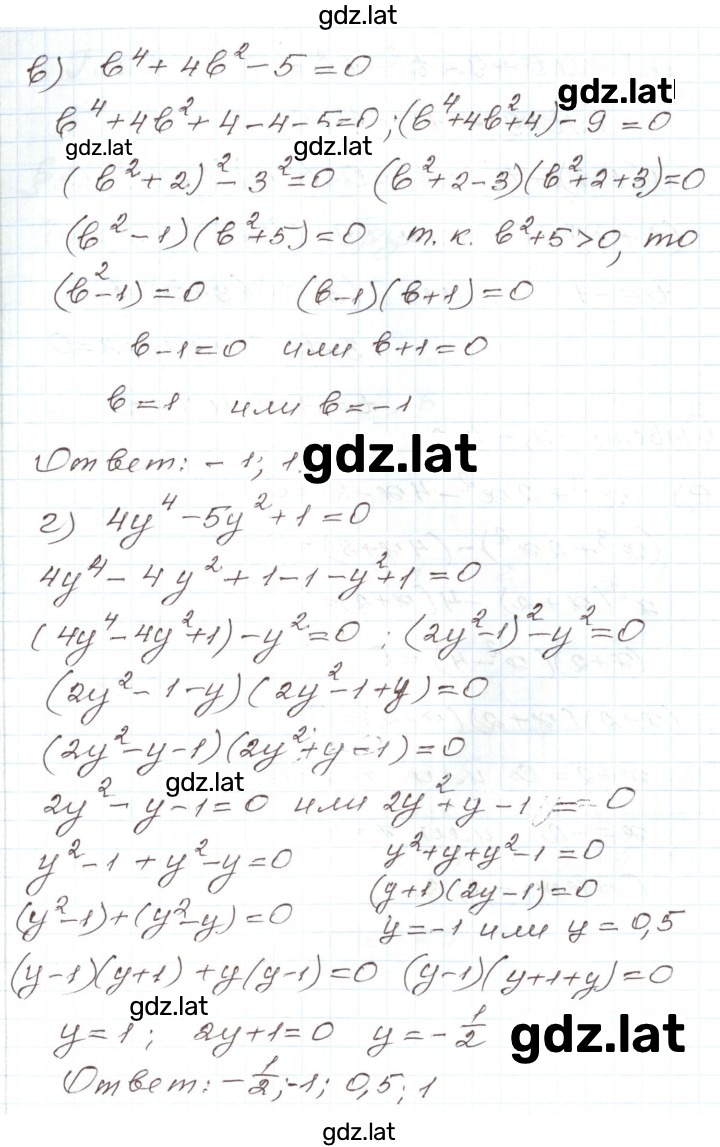 gdz.lat
в) b⁴ + 4b² − 5 = 0
gdz.lat
b⁴ + 4b² + 4 − 4 − 5 = 0; (b⁴ + 4b² + 4) − 9 = 0
gdz.lat gdz.lat
(b² + 2)² − 3² = 0 (b² + 2 − 3)(b² + 2 + 3) = 0
(b² − 1)(b² + 5) = 0 т. к. b² + 5 > 0, то
(b² − 1) = 0 (b − 1)(b + 1) = 0
b − 1 = 0 или b + 1 = 0
b = 1 или b = −1
Ответ: −1; 1.
gdz.lat
г) 4y⁴ − 5y² + 1 = 0
4y⁴ − 4y² + 1 − 1 − y² + 1 = 0
(4y⁴ − 4y² + 1) − y² = 0; (2y² − 1)² − y² = 0
(2y² − 1 − y)(2y² − 1 + y) = 0
(2y² − y − 1)(2y² + y − 1) = 0
gdz.lat
2y² − y − 1 = 0 или 2y² + y − 1 = 0
y² − 1 + y² − y = 0 y² + y + y² − 1 = 0
(y + 1)(2y − 1) = 0
(y² − 1) + (y² − y) = 0 y = −1 или y = 0,5
(y − 1)(y + 1) + y(y − 1) = 0 (y − 1)(y + 1 + y) = 0
gdz.lat
y = 1; 2y + 1 = 0 y = −1/2
gdz.lat
Ответ: −1/2; −1; 0,5; 1
gdz.lat